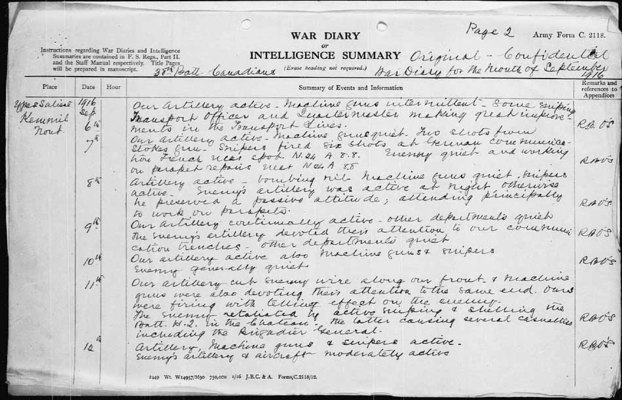 Page 2
Army Form C. 2118.
WAR DIARY
or
INTELLIGENCE SUMMARY
Original - Confidential
(Erase heading not required.)
Instructions regarding War Diaries and Intelligence
Summaries are contained in F. S. Regs., Part II.
and the Staff Manual respectively. Title Pages
will be prepared in manuscript.
38th Batt. Canadians
War Diary for the Month of September
1916
Place Date Hour Summary of Events and Information Remarks and references to Appendices
Ypres Salient 1916 Our Artillery active - Machine Guns intermittent - Some Sniping
Kemmel Sep Transport Officer and Quartermaster making great improve-
6th ments in the Transport Lines.
7th Our Artillery active. Machine Guns quiet. Two shots from
Stokes Gun. Snipers fired six shots at German communica-
tion trench near spot N.24 A 8.8. Enemy quiet and working
on parapet repairs near N24 A 88
8th Artillery active - bombing nil Machine Guns quiet. Snipers
active. Enemy's artillery was active at night otherwise
he preserved a passive attitude, attending principally
to work on parapets.
9th Our Artillery continually active - other departments quiet
The Enemy's artillery devoted their attention to our communi-
cation trenches - other departments quiet
10th Our artillery active also Machine Guns & snipers
Enemy generally quiet
11th Our Artillery cut enemy wire along our front. & Machine
guns were also devoting their attention to the same end. Ours
were firing with telling effect on the enemy.
The Enemy retaliated by active sniping & shelling the
Batt. H.Q. in the Chateau - the latter causing several casualties
including the Brigadier General.
12 Artillery, Machine guns & snipers active.
Enemy's artillery & aircraft moderately active
2449 Wt. W14957/M90 750,000 1/16 J.B.C. & A. Forms/C.2118/12.